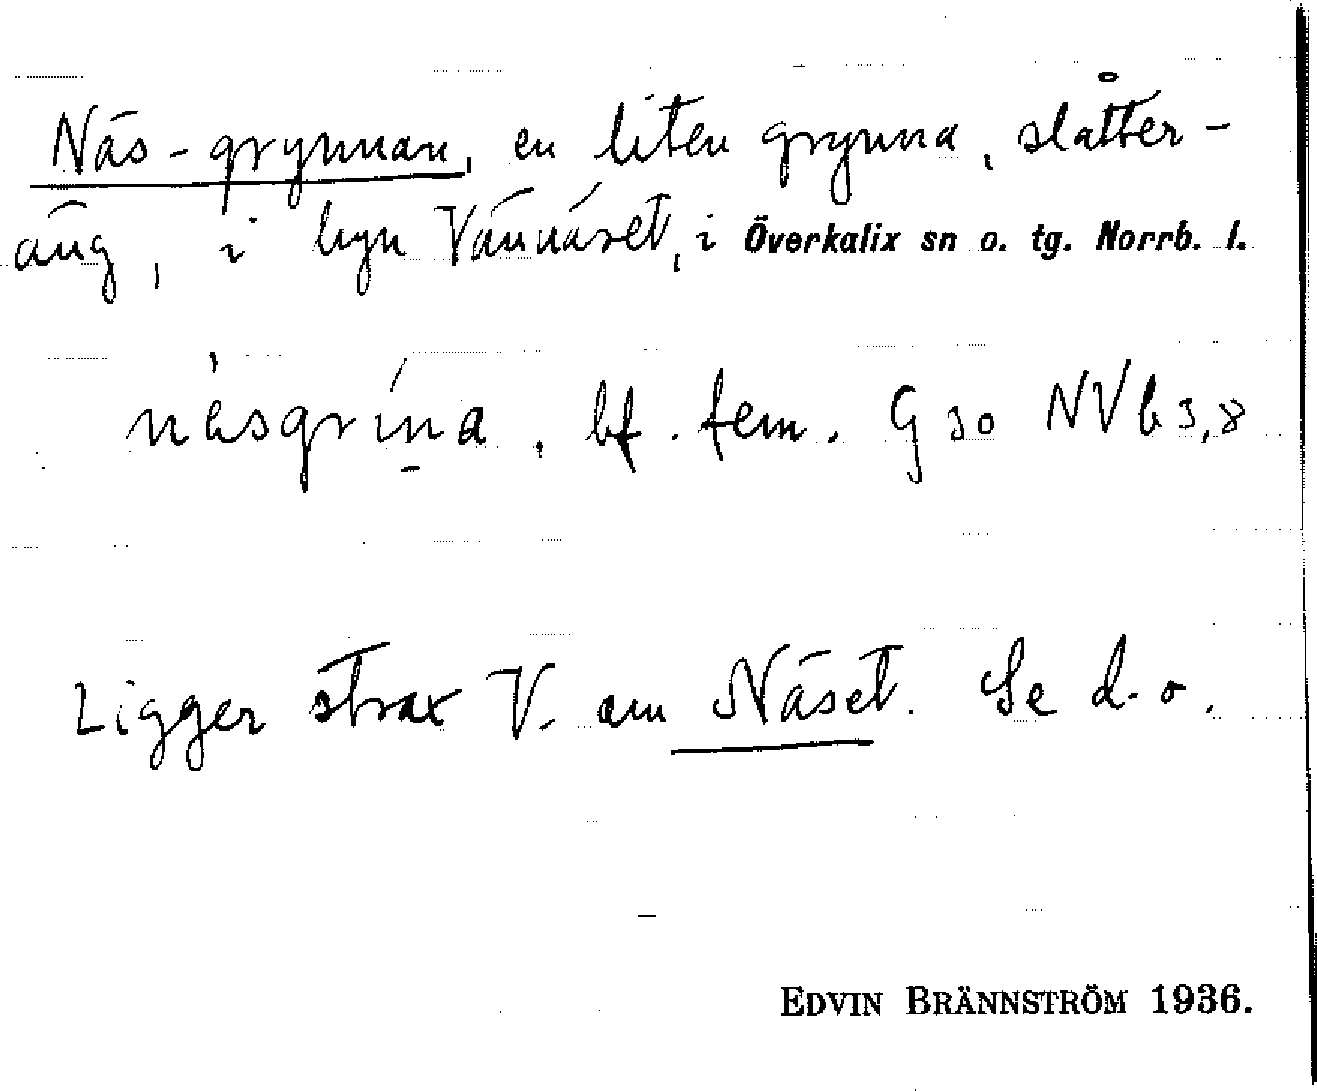 Näs-grynnan, en liten grynna, slåtter-
äng, i byn Vännäset, i Överkalix sn o. tg. Norrb. l.
näsgrina, bf. fem. G 30 NVb 3,8
Ligger strax V. om Näset. Se d. o.
EDVIN BRÄNNSTRÖM 1936.